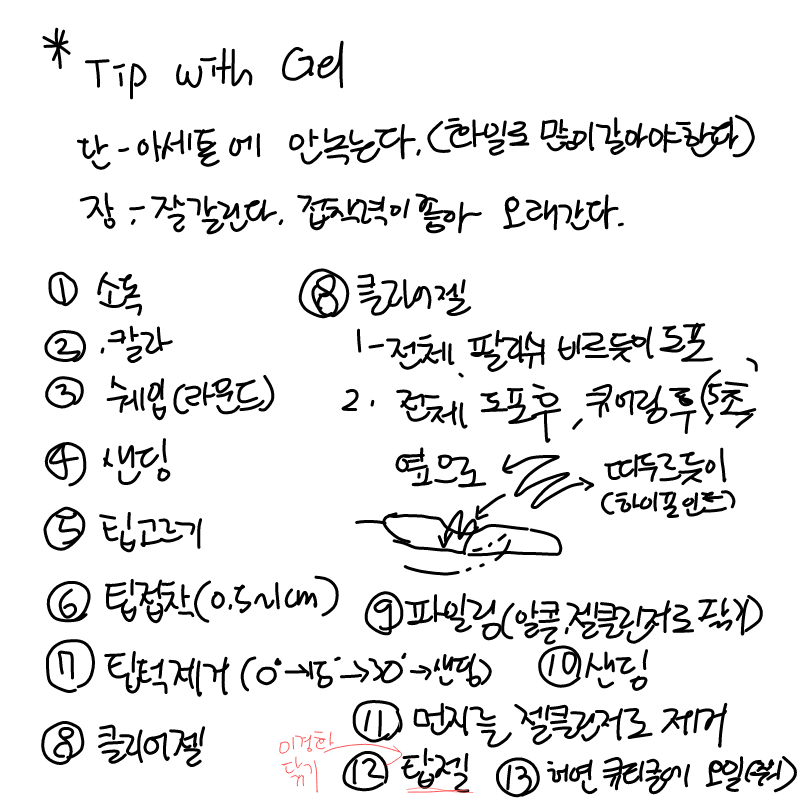 * Tip with Gel
단 - 아세톤에 안녹는다. (화일로 많이갈아야한다)
장 - 잘갈린다. 접착력이 좋아 오래간다.
① 소독
② .칼라
③ 쉐입(라운드)
④ 샌딩
⑤ 팁고르기
⑥ 팁접착(0.5~1cm)
⑦ 팁턱제거 (0°→15°→30°→샌딩)
⑧ 클리어젤
⑧ 클리어젤
1-전체 팔리쉬 바르듯이 도포
2. 전체 도포후, 큐어링 후(5초,
옆으로
떠두르듯이
(하이포인트)
⑨ 파일링(알콜,젤클린저로 닦기)
⑩ 샌딩
⑪ 먼지를 젤클린저로 제거
이경화
닦기
⑫ 탑젤
⑬ 오일